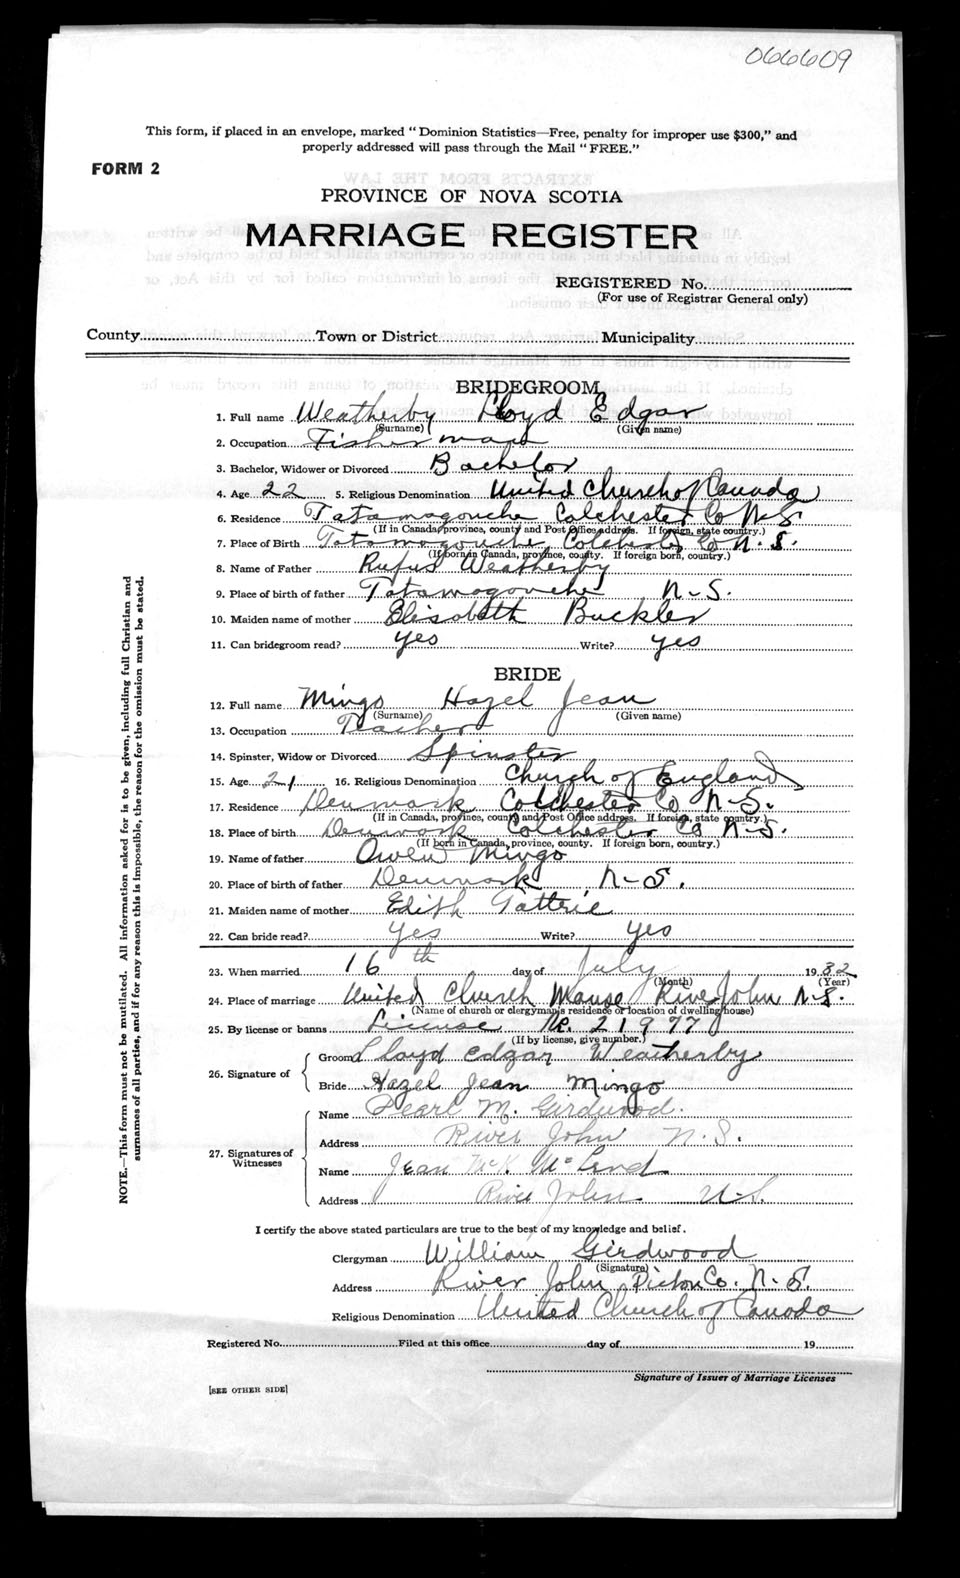 066609
This form, if placed in an envelope, marked "Dominion Statistics—Free, penalty for improper use $300," and
properly addressed will pass through the Mail "FREE."
FORM 2
PROVINCE OF NOVA SCOTIA
MARRIAGE REGISTER
REGISTERED No.
(For use of Registrar General only)
County Town or District Municipality
BRIDEGROOM
1. Full name Weatherby Lloyd Edgar
(Surname) (Given name)
2. Occupation Fisherman
3. Bachelor, Widower or Divorced Bachelor
4. Age 22 5. Religious Denomination United Church of Canada
6. Residence Tatamagouche Colchester Co N-S
(If in Canada, province, county and Post Office address. If foreign, state country.)
7. Place of Birth Tatamagouche Colchester Co N.S.
(If born in Canada, province, county. If foreign born, country.)
8. Name of Father Rufus Weatherby
9. Place of birth of father Tatamagouche N-S.
10. Maiden name of mother Elisabeth Buckler
11. Can bridegroom read? yes Write? yes
BRIDE
12. Full name Mingo Hazel Jean
(Surname) (Given name)
13. Occupation Teacher
14. Spinster, Widow or Divorced Spinster
15. Age 21 16. Religious Denomination Church of England
17. Residence Denmark Colchester Co N-S.
(If in Canada, province, county and Post Office address. If foreign, state country.)
18. Place of birth Denmark Colchester Co N-S.
(If born in Canada, province, county. If foreign born, country.)
19. Name of father Owen Mingo
20. Place of birth of father Denmark, N-S.
21. Maiden name of mother Edith Tattrie
22. Can bride read? Yes Write? Yes
23. When married 16th day of July 1932
(Month) (Year)
24. Place of marriage United Church Manse River John N-S.
(Name of church or clergyman's residence or location of dwelling house)
25. By license or banns License No. 21977
(If by license, give number.)
26. Signature of
Groom Lloyd Edgar Weatherby
Bride Hazel Jean Mingo
27. Signatures of Witnesses
Name Pearl M. Girdwood.
Address River John N.S.
Name Jean McK.
Address River John N-S.
I certify the above stated particulars are true to the best of my knowledge and belief.
Clergyman William Girdwood
(Signature)
Address River John Pictou Co. N-S.
Religious Denomination United Church of Canada
Registered No. Filed at this office day of 19
Signature of Issuer of Marriage Licenses
[SEE OTHER SIDE]
NOTE.—This form must not be mutilated. All information asked for is to be given, including full Christian and
surnames of all parties, and if for any reason this is impossible, the reason for the omission must be stated.